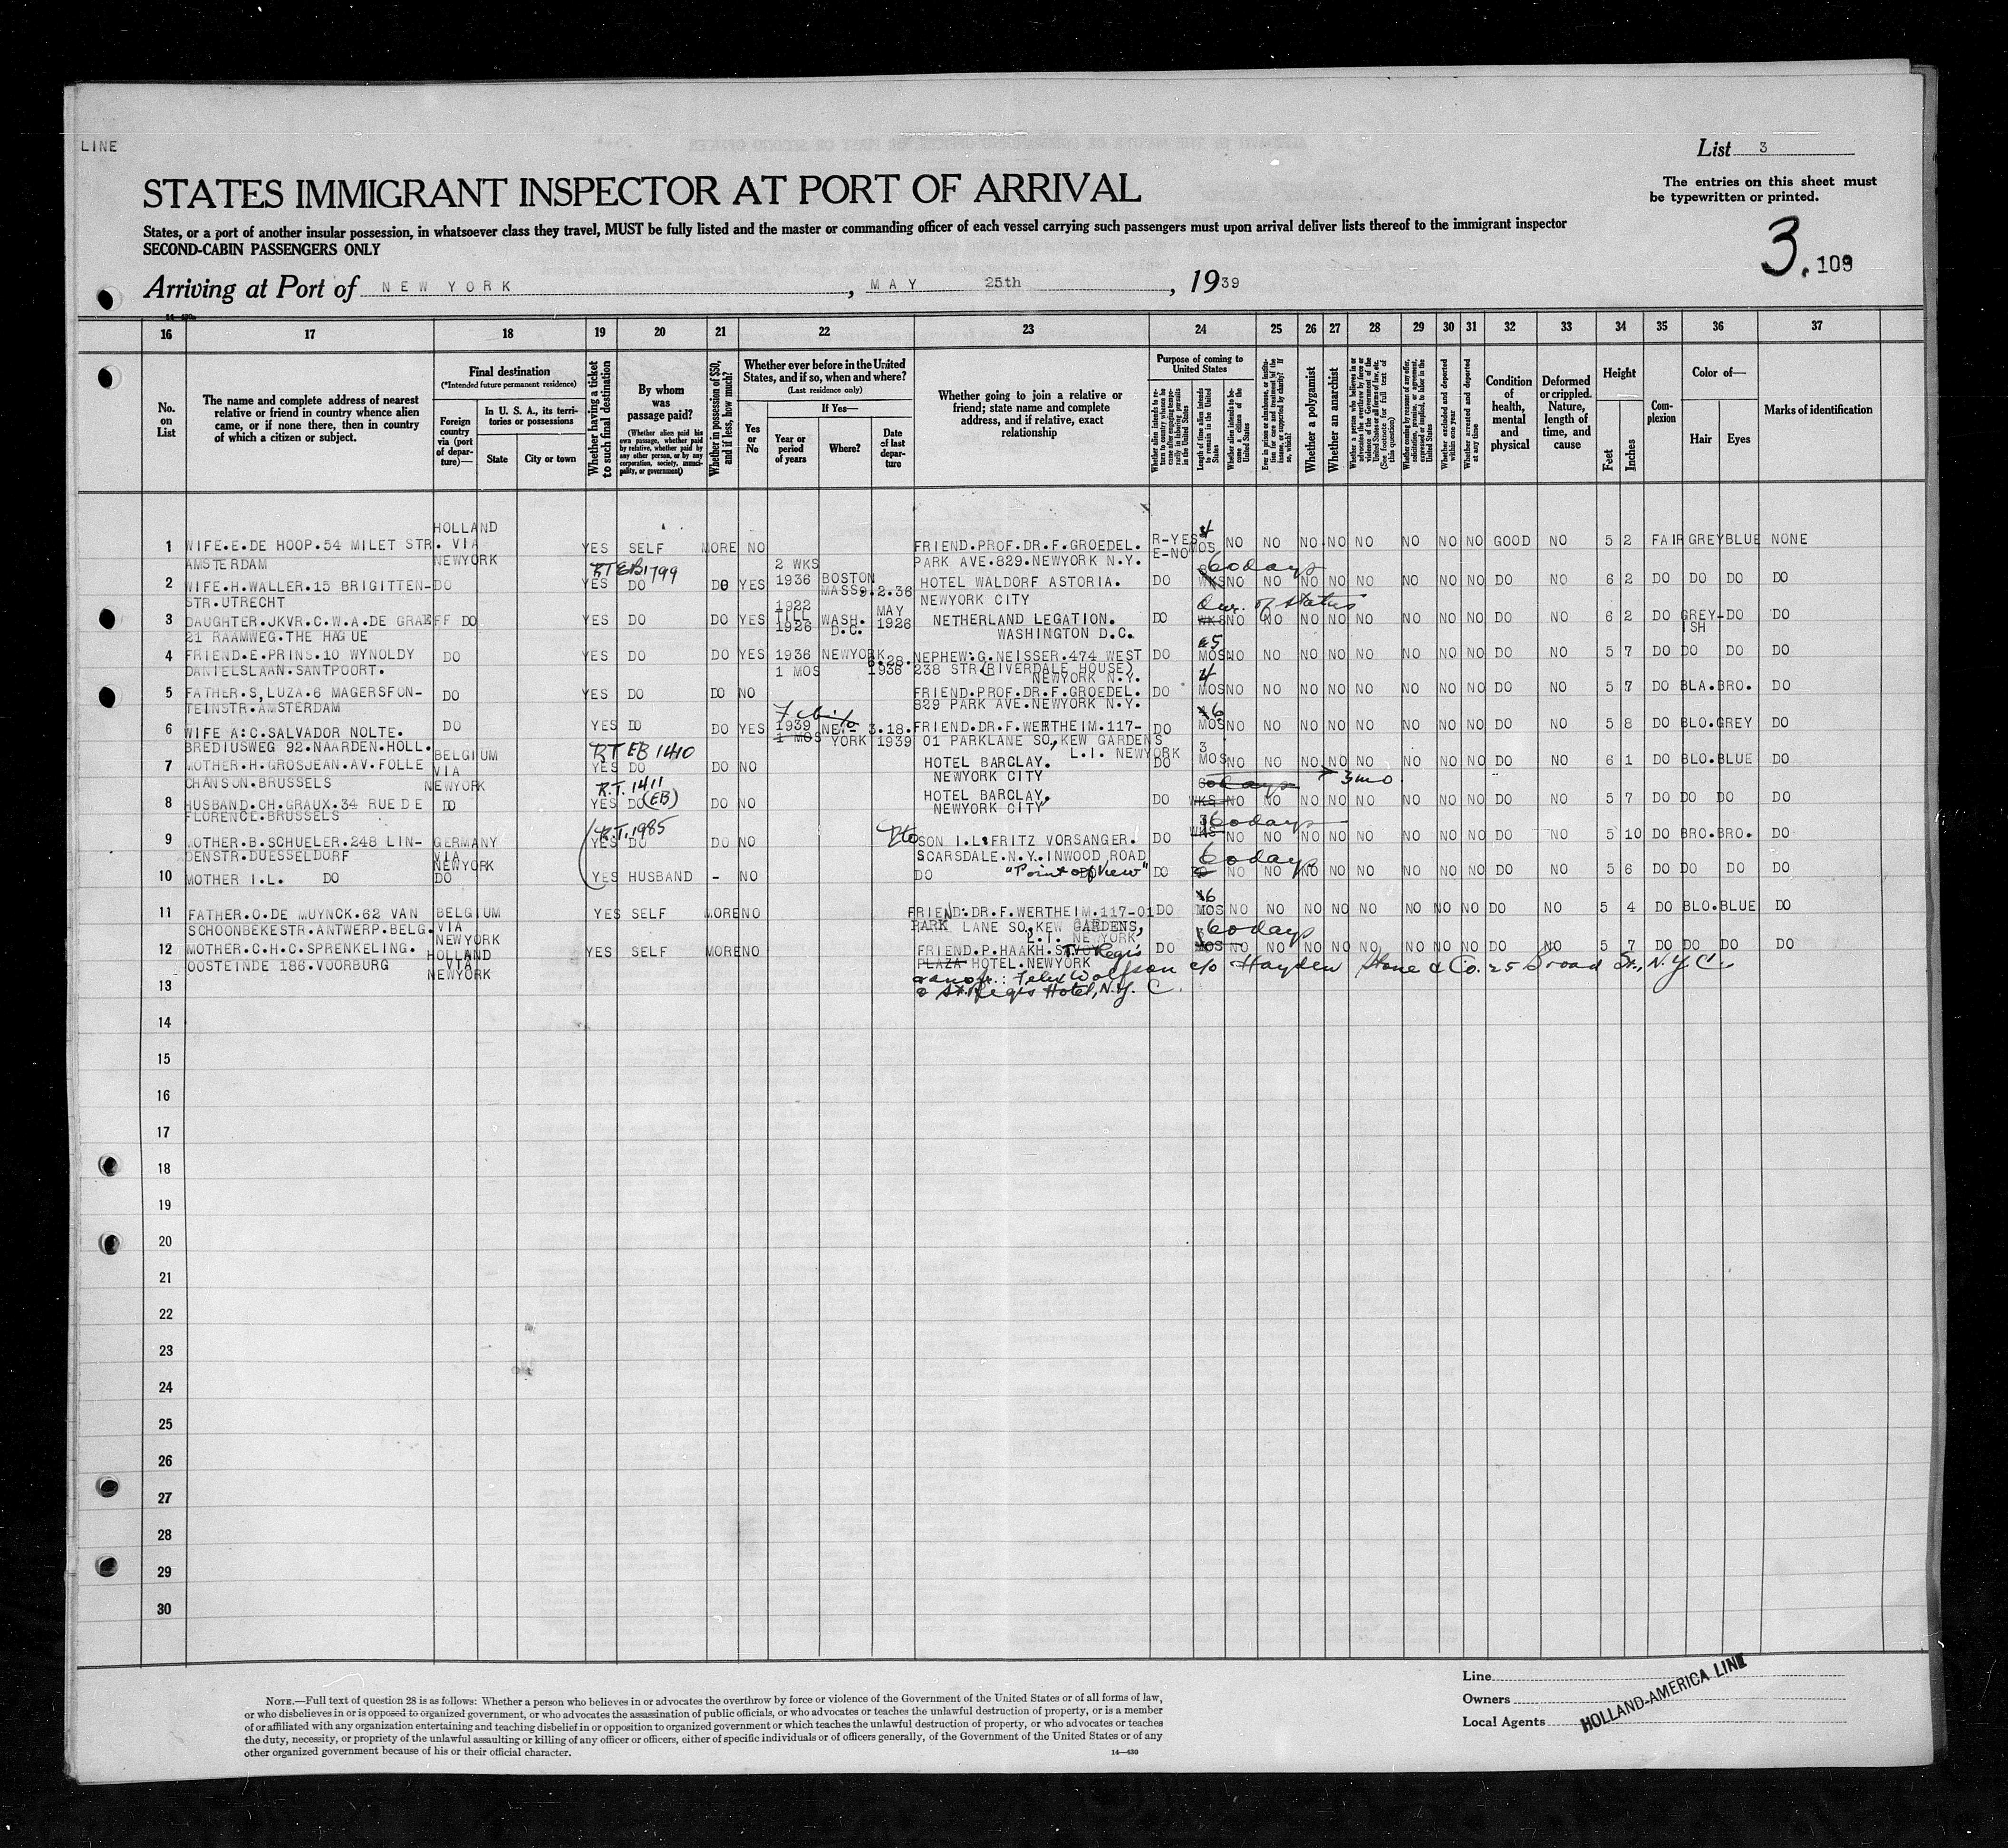 LINE
List 3
STATES IMMIGRANT INSPECTOR AT PORT OF ARRIVAL
The entries on this sheet must
be typewritten or printed.
States, or a port of another insular possession, in whatsoever class they travel, MUST be fully listed and the master or commanding officer of each vessel carrying such passengers must upon arrival deliver lists thereof to the immigrant inspector
SECOND-CABIN PASSENGERS ONLY
3. 109
Arriving at Port of NEW YORK, MAY 25th, 1939
16 17 18 19 20 21 22 23 24 25 26 27 28 29 30 31 32 33 34 35 36 37
No. on List
The name and complete address of nearest relative or friend in country whence alien came, or if none there, then in country of which a citizen or subject.
Final destination
(*Intended future permanent residence)
Foreign country via (port of departure)—
In U. S. A., its territories or possessions
State
City or town
Whether having a ticket to such final destination
By whom was passage paid?
(Whether alien paid his own passage, whether paid by relative, whether paid by any other person, or by any corporation, society, municipality, or government)
Whether in possession of $50, and if less, how much?
Whether ever before in the United States, and if so, when and where?
(Last residence only)
Yes or No
If Yes—
Year or period of years
Where?
Date of last departure
Whether going to join a relative or friend; state name and complete address, and if relative, exact relationship
Purpose of coming to United States
Whether alien intends to return to country whence he came after engaging temporarily in laboring pursuits in the United States
Length of time alien intends to remain in the United States
Whether alien intends to become a citizen of the United States
Ever in prison or almshouse, or institution for care and treatment of the insane, or supported by charity? If so, which?
Whether a polygamist
Whether an anarchist
Whether a person who believes in or advocates the overthrow by force or violence of the Government of the United States or all forms of law, etc. (See footnote for full text of this question)
Whether coming by reason of any offer, solicitation, promise, or agreement, expressed or implied, to labor in the United States
Whether excluded and deported within one year
Whether arrested and deported at any time
Condition of health, mental and physical
Deformed or crippled. Nature, length of time, and cause
Height
Feet
Inches
Complexion
Color of—
Hair
Eyes
Marks of identification
1 WIFE.E.DE HOOP.54 MILET STR. AMSTERDAM HOLLAND VIA NEWYORK YES SELF MORE NO FRIEND.PROF.DR.F.GROEDEL. PARK AVE.829.NEWYORK N.Y. R-YES E-NO 4 MOS NO NO NO NO NO NO NO NO GOOD NO 5 2 FAIR GREY BLUE NONE
2 WIFE.H.WALLER.15 BRIGITTEN- STR.UTRECHT DO RT EB 1799 YES DO DO YES 2 WKS 1936 BOSTON MASS 9.2.36 HOTEL WALDORF ASTORIA. NEWYORK CITY DO 60 days WKS NO NO NO NO NO NO NO NO DO NO 6 2 DO DO DO DO
3 DAUGHTER.JKVR.C.W.A.DE GRAEFF 21 RAAMWEG.THE HAGUE DO YES DO DO YES 1922 TILL 1926 WASH. D.C. MAY 1926 NETHERLAND LEGATION. WASHINGTON D.C. DO Dur. of status WKS NO NO NO NO NO NO NO NO DO NO 6 2 DO GREY-ISH DO DO
4 FRIEND.E.PRINS.10 WYNOLDY DANIELSLAAN.SANTPOORT. DO YES DO DO YES 1936 1 MOS NEWYORK 6.28. 1936 NEPHEW:G.NEISSER.474 WEST 238 STR(RIVERDALE HOUSE) NEWYORK N.Y. DO 5 MOS NO NO NO NO NO NO NO NO DO NO 5 7 DO DO DO DO
5 FATHER.S,LUZA.6 MAGERSFON- TEINSTR.AMSTERDAM DO YES DO DO NO FRIEND.PROF.DR.F.GROEDEL. 829 PARK AVE.NEWYORK N.Y. DO 4 MOS NO NO NO NO NO NO NO NO DO NO 5 7 DO BLA. BRO. DO
6 WIFE A:C.SALVADOR NOLTE. BREDIUSWEG 92.NAARDEN.HOLL. DO YES DO DO YES 1939 1 MOS NEW- YORK 3.18. 1939 FRIEND.DR.F.WERTHEIM.117- 01 PARKLANE SO,KEW GARDENS L.I. NEWYORK DO 6 MOS NO NO NO NO NO NO NO NO DO NO 5 8 DO BLO. GREY DO
7 MOTHER.H.GROSJEAN.AV.FOLLE CHANSON.BRUSSELS BELGIUM VIA NEWYORK RT EB 1410 YES DO DO NO HOTEL BARCLAY. NEWYORK CITY DO 3 MOS NO NO NO NO NO NO NO NO DO NO 6 1 DO BLO. BLUE DO
8 HUSBAND.CH.GRAUX.34 RUE DE FLORENCE.BRUSSELS DO R.T. 1411 (EB) YES DO DO NO HOTEL BARCLAY. NEWYORK CITY DO 60 days 3 mo WKS NO NO NO NO NO NO NO NO DO NO 5 7 DO DO DO DO
9 MOTHER.B.SCHUELER.248 LIN- DENSTR.DUESSELDORF GERMANY VIA NEWYORK R.T. 1985 YES DO DO NO SON I.L:FRITZ VORSANGER. SCARSDALE.N.Y.INWOOD ROAD DO 60 days WKS NO NO NO NO NO NO NO NO DO NO 5 10 DO BRO. BRO. DO
10 MOTHER I.L. DO DO YES HUSBAND - NO DO "Point of View" DO 60 days NO NO NO NO NO NO NO NO DO NO 5 6 DO DO DO DO
11 FATHER.O.DE MUYNCK.62 VAN SCHOONBEKESTR.ANTWERP.BELG. BELGIUM VIA NEWYORK YES SELF MORE NO FRIEND.DR.F.WERTHEIM.117-01 PARK LANE SO,KEW GARDENS, L.I. NEWYORK DO 6 MOS NO NO NO NO NO NO NO NO DO NO 5 4 DO BLO. BLUE DO
12 MOTHER.C.H.C.SPRENKELING. OOSTEINDE 186.VOORBURG HOLLAND VIA NEWYORK YES SELF MORE NO FRIEND.P.HAAKH. St. Regis PLAZA HOTEL.NEWYORK DO 60 days MOS NO NO NO NO NO NO NO NO DO NO 5 7 DO DO DO DO
Felix Wolfson c/o Hayden Stone & Co. 25 Broad St., N.Y.C.
St. Regis Hotel, N.Y.C.
13
14
15
16
17
18
19
20
21
22
23
24
25
26
27
28
29
30
NOTE.—Full text of question 28 is as follows: Whether a person who believes in or advocates the overthrow by force or violence of the Government of the United States or of all forms of law,
or who disbelieves in or is opposed to organized government, or who advocates the assassination of public officials, or who advocates or teaches the unlawful destruction of property, or is a member
of or affiliated with any organization entertaining and teaching disbelief in or opposition to organized government or which teaches the unlawful destruction of property, or who advocates or teaches
the duty, necessity, or propriety of the unlawful assaulting or killing of any officer or officers, either of specific individuals or of officers generally, of the Government of the United States or of any
other organized government because of his or their official character.
14—430
Line
Owners
Local Agents
HOLLAND-AMERICA LINE